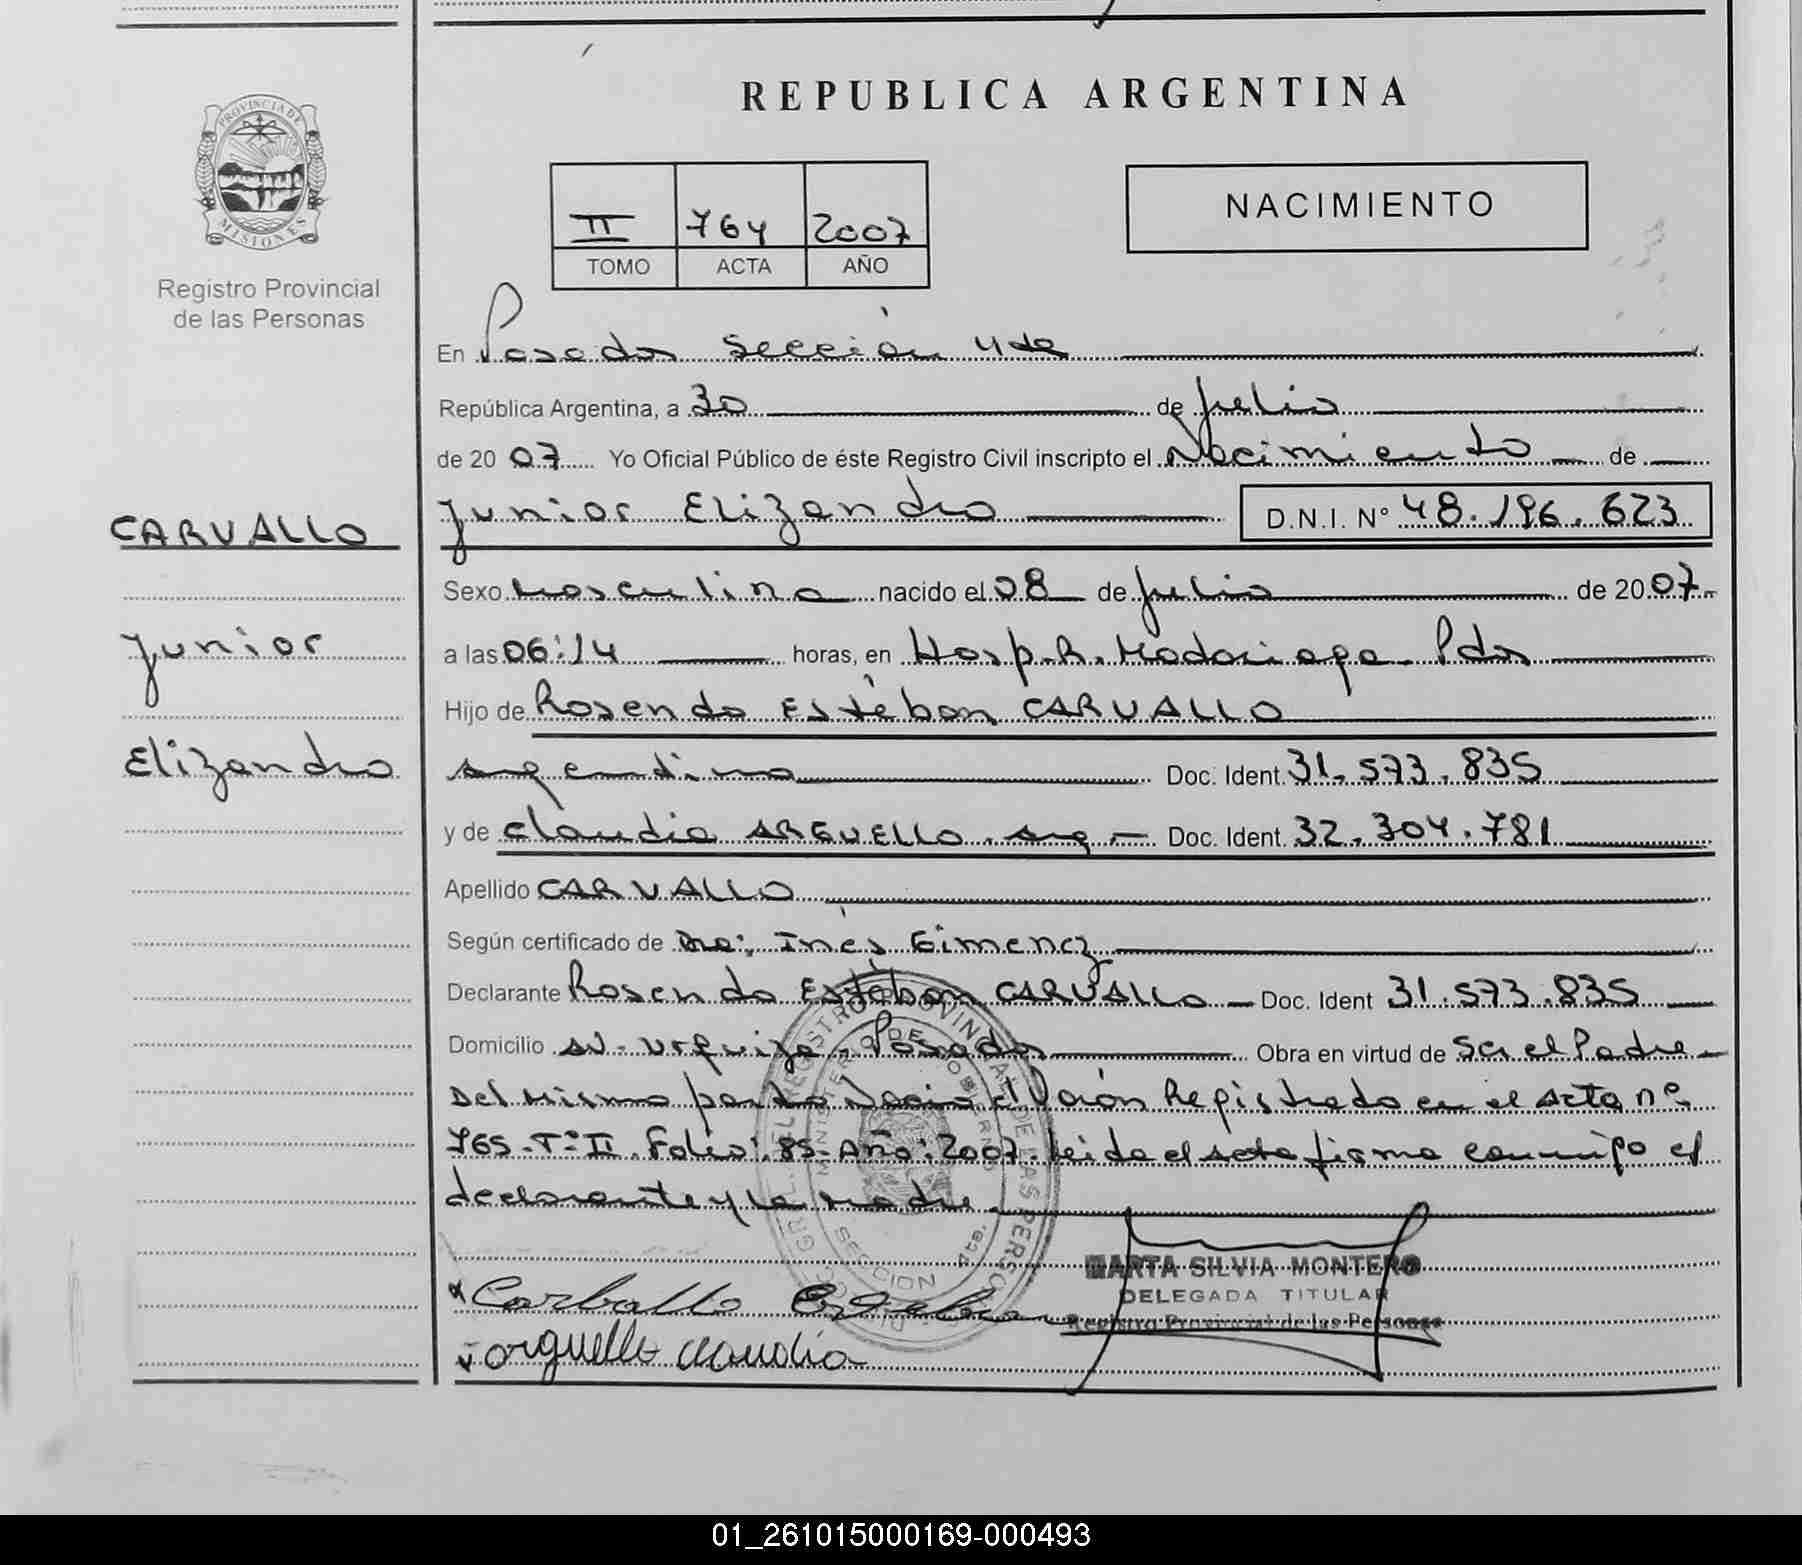 REPUBLICA ARGENTINA
PROVINCIA DE
MISIONES
Registro Provincial
de las Personas
II 764 2007
TOMO ACTA AÑO
NACIMIENTO
En Posadas Sección 4ta
República Argentina, a 30 de Julio
de 2007 Yo Oficial Público de éste Registro Civil inscripto el Nacimiento de
CARVALLO
Junior
Elizandro
Junior Elizandro D.N.I. N° 48.196.623
Sexo Masculino nacido el 08 de Julio de 2007
a las 06:14 horas, en Hosp. R. Madariaga Pdas
Hijo de Rosendo Estéban CARVALLO
argentino Doc. Ident. 31.573.835
y de Claudia ARGUELLO. arg. Doc. Ident. 32.304.781
Apellido CARVALLO
Según certificado de Dra: Inés Gimenez
Declarante Rosendo Estéban CARVALLO Doc. Ident 31.573.835
Domicilio Urquiza Posadas Obra en virtud de Ser el Padre
Del mismo parto Nació el Varón Registrado en el acta nº
765. Tº II. Folio: 85. Año: 2007. Leída el acta firma conmigo el
declarante y la madre.
REGISTRO PROVINCIAL DE LAS PERSONAS
MINISTERIO DE GOBIERNO
SECCION 4ta.
MARTA SILVIA MONTERO
DELEGADA TITULAR
Registro Provincial de las Personas
Carballo Esteban
arguello claudia
01_261015000169-000493